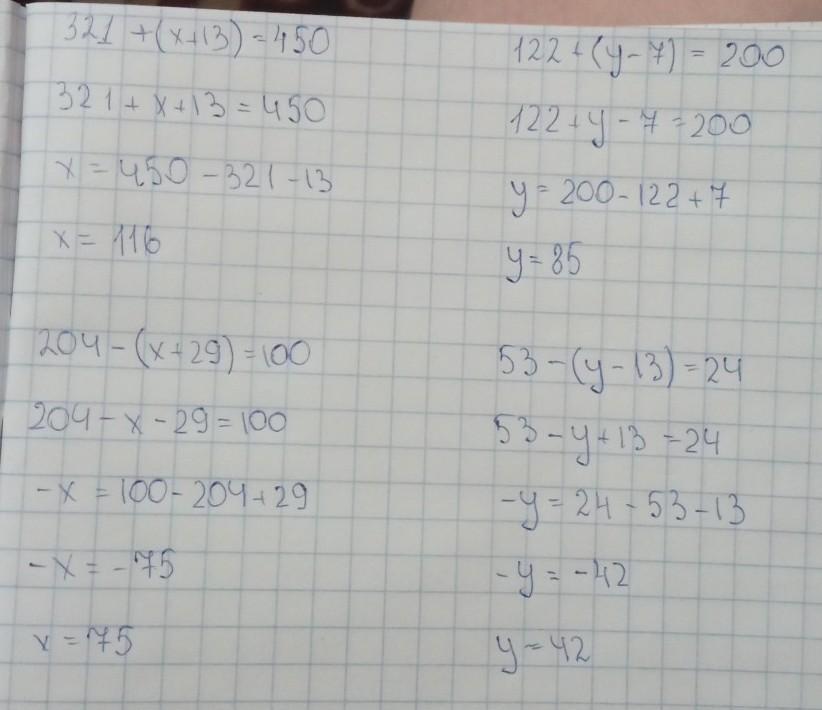 321 + (x+13) = 450
321 + x + 13 = 450
x = 450 - 321 - 13
x = 116
122 + (y - 7) = 200
122 + y - 7 = 200
y = 200 - 122 + 7
y = 85
204 - (x + 29) = 100
204 - x - 29 = 100
-x = 100 - 204 + 29
-x = -75
x = 75
53 - (y - 13) = 24
53 - y + 13 = 24
-y = 24 - 53 - 13
-y = -42
y = 42